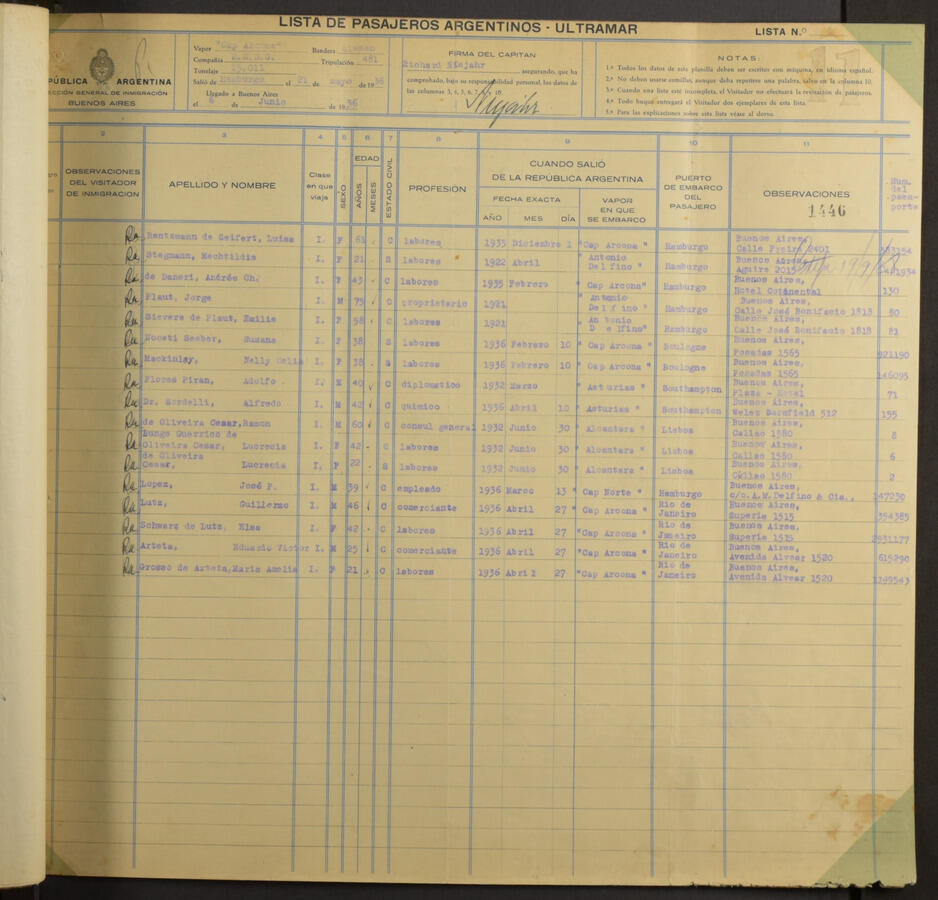 LISTA DE PASAJEROS ARGENTINOS - ULTRAMAR
LISTA N.º
PÚBLICA ARGENTINA
CCIÓN GENERAL DE INMIGRACIÓN
BUENOS AIRES
Vapor "Cap Arcona" Bandera aleman
Compañía Tripulación 481
Tonelaje
Salió de Hamburgo el 21 de mayo de 1936
Llegado a Buenos Aires
el 6 de Junio de 1936
FIRMA DEL CAPITAN
Richard Niejahr asegurando, que ha
comprobado, bajo su responsabilidad personal, los datos de
las columnas 3, 4, 5, 6, 7, 10.
Niejahr
NOTAS:
1.ª Todos los datos de esta planilla deben ser escritos con máquina, en idioma español.
2.ª No deben usarse comillas, aunque deba repetirse una palabra, salvo en la columna 10.
3.ª Cuando una lista esté incompleta, el Visitador no efectuará la revisación de pasajeros.
4.ª Todo buque entregará el Visitador dos ejemplares de esta lista.
5.ª Para las explicaciones sobre esta lista véase al dorso.
17
2 3 4 5 6 7 8 9 10 11
OBSERVACIONES DEL VISITADOR DE INMIGRACION
APELLIDO Y NOMBRE
Clase en que viaja
SEXO
EDAD
AÑOS
MESES
ESTADO CIVIL
PROFESIÓN
CUANDO SALIÓ DE LA REPÚBLICA ARGENTINA
FECHA EXACTA
AÑO MES DÍA
VAPOR EN QUE SE EMBARCO
PUERTO DE EMBARCO DEL PASAJERO
OBSERVACIONES
1446
Num. del pasaporte
Rentzmann de Seifert, Luisa I. F 61 C labores 1935 Diciembre 1 "Cap Arcona" Hamburgo Buenos Aires, Calle Freire 2401
Stegmann, Mechtildis I. F 21 S labores 1922 Abril "Antonio Delfino" Hamburgo Buenos Aires, Aguire 2015
de Daneri, Andrée Ch. I. F 43 C labores 1935 Febrero "Cap Arcona" Hamburgo Buenos Aires, Hotel Continental 130
Plaut, Jorge I. M 75 C propietario 1921 "Antonio Delfino" Hamburgo Buenos Aires, Calle José Bonifacio 1818 80
Sievers de Plaut, Emilie I. F 58 C labores 1921 "Antonio Delfino" Hamburgo Buenos Aires, Calle José Bonifacio 1818 81
Seeber, Susana I. F 38 S labores 1936 Febrero 10 "Cap Arcona" Boulogne Buenos Aires, Posadas 1565 921190
Mackinlay, Nelly Celia I. F 38 S labores 1936 Febrero 10 "Cap Arcona" Boulogne Buenos Aires, Posadas 1565 146095
Flores Piran, Adolfo I. M 40 C diplomatico 1932 Marzo "Asturias" Southampton Buenos Aires, Plaza - Hotel 71
Dr. Sordelli, Alfredo I. M 42 C quimico 1936 Abril 10 "Asturias" Southampton Buenos Aires, Velez Sarsfield 512 155
de Oliveira Cesar, Ramon I. M 60 C consul general 1932 Junio 30 "Alcantara" Lisboa Buenos Aires, Callao 1580 8
Bunge Guerrico de Oliveira Cesar, Lucrecia I. F 42 C labores 1932 Junio 30 "Alcantara" Lisboa Buenos Aires, Callao 1580 6
de Oliveira Cesar, Lucrecia I. F 22 S labores 1932 Junio 30 "Alcantara" Lisboa Buenos Aires, Callao 1580 2
Lopez, José F. I. M 39 C empleado 1936 Marzo 13 "Cap Norte" Hamburgo Buenos Aires, c/o. A.M.Delfino & Cia., 147230
Lutz, Guillermo I. M 46 C comerciante 1936 Abril 27 "Cap Arcona" Rio de Janeiro Buenos Aires, Superie 1515 354385
Schwarz de Lutz, Elsa I. F 42 C labores 1936 Abril 27 "Cap Arcona" Rio de Janeiro Buenos Aires, Superie 1515 2931177
Arteta, Eduardo Victor I. M 25 C comerciante 1936 Abril 27 "Cap Arcona" Rio de Janeiro Buenos Aires, Avenida Alvear 1520 615290
Grosso de Arteta, Maria Amelia I. F 21 C labores 1936 Abril 27 "Cap Arcona" Rio de Janeiro Buenos Aires, Avenida Alvear 1520 1299543